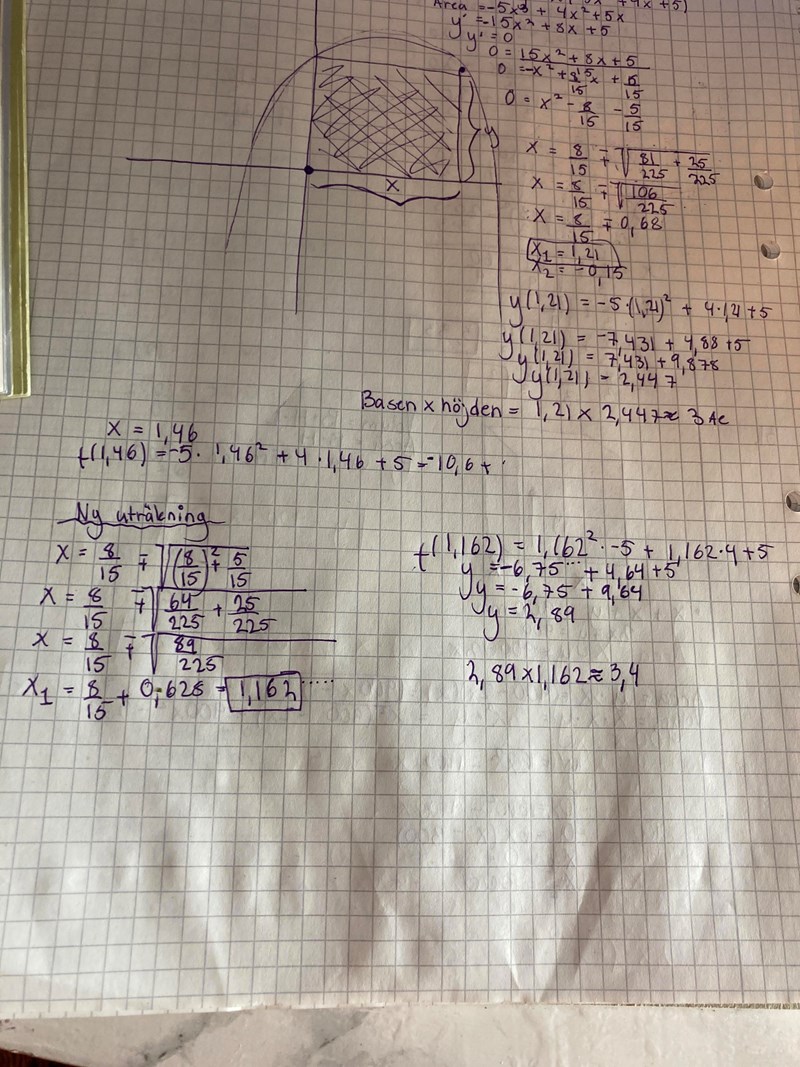 + 4x + 5)
Area = -5x³ + 4x² + 5x
y' = -15x² + 8x + 5
y' = 0
0 = 15x² + 8x + 5
0 = -x² + 8/15 x + 5/15
0 = x² - 8/15 - 5/15
x = 8/15 ∓ √(81/225 + 25/225)
x = 8/15 ∓ √(106/225)
x = 8/15 ∓ 0,68
x₁ = 1,21
x₂ = -0,15
x
y(1,21) = -5·(1,21)² + 4·1,21+5
y(1,21) = -7,431 + 4,88 +5
y(1,21) = 7,431 + 9,878
y(1,21) = 2,447
Basen x höjden = 1,21 x 2,447 ≈ 3 Ae
x = 1,46
f(1,46) = -5 · 1,46² + 4 · 1,46 + 5 = -10,6 +
Ny uträkning
x = 8/15 ∓ √((8/15)² + 5/15)
x = 8/15 ∓ √(64/225 + 25/225)
x = 8/15 ∓ √(89/225)
x₁ = 8/15 + 0,628 = 1,162 .....
f(1,162) = 1,162² · -5 + 1,162·4+5
y = -6,75... + 4,64+5
y = -6,75 + 9,64
y = 2,89
2,89 x 1,162 ≈ 3,4